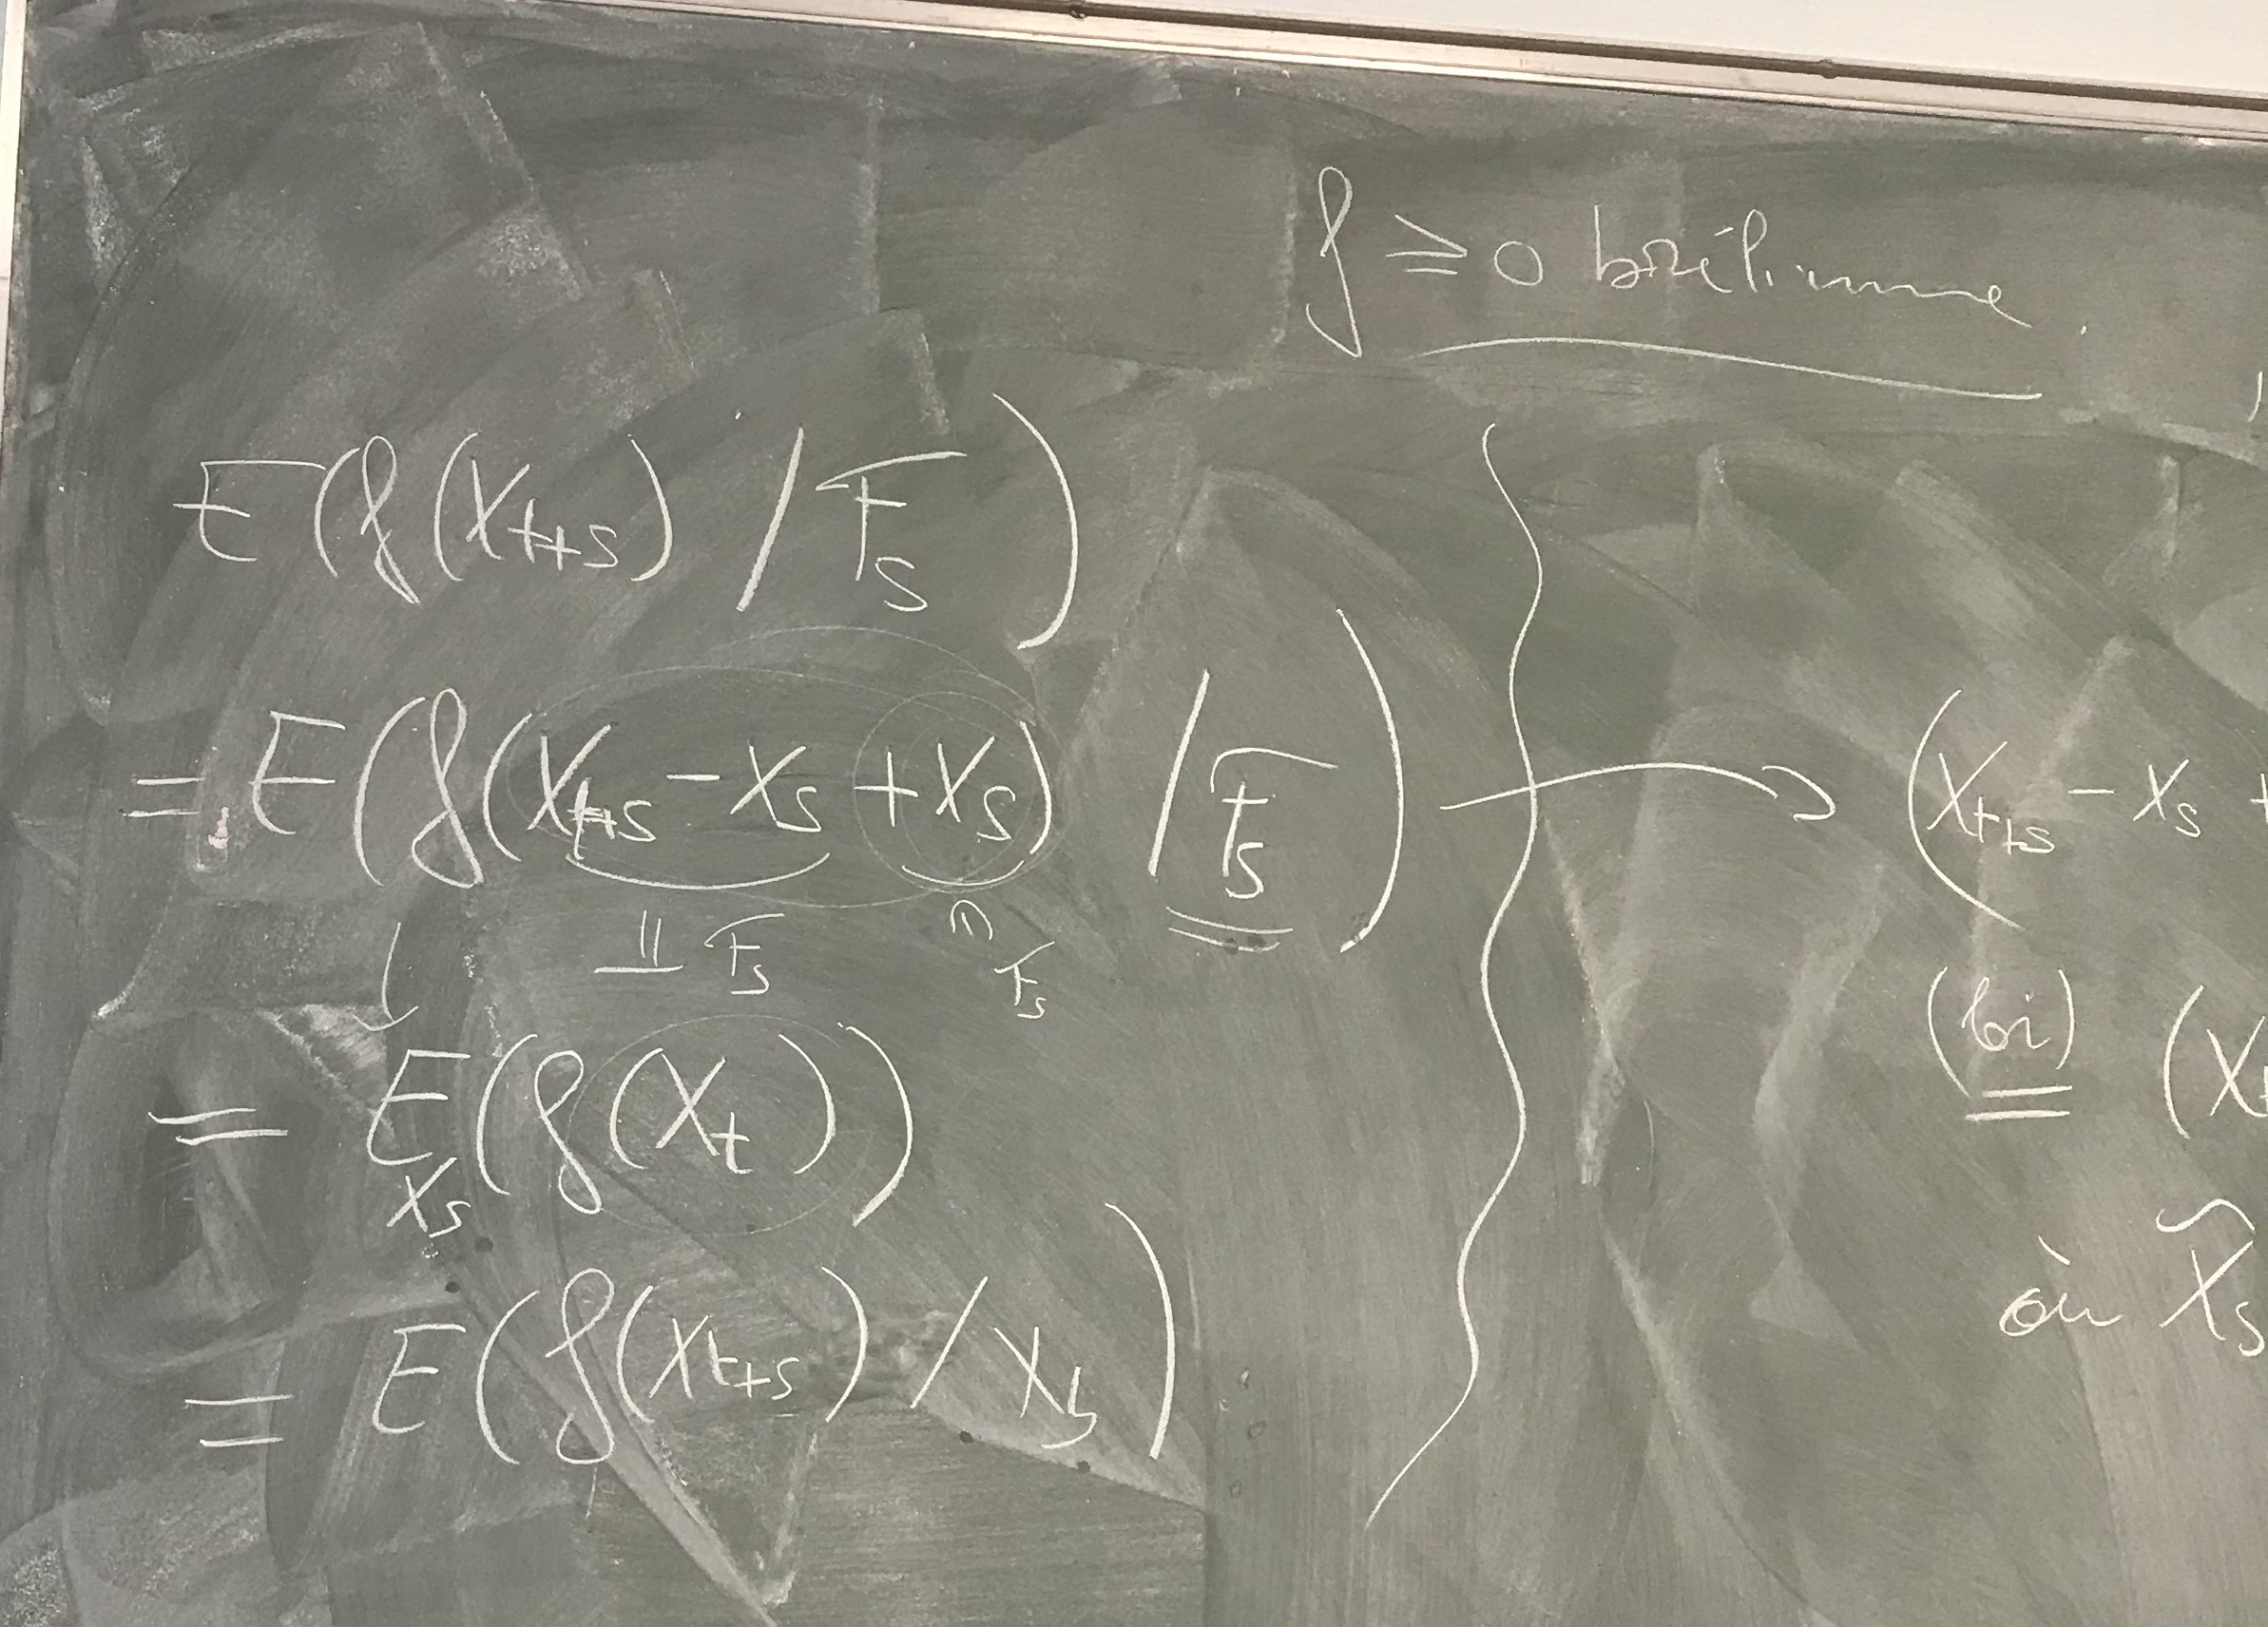 f ≥ 0 borélienne.
E(f(X_{t+s}) / F_s)
= E(f(X_{t+s} - X_s + X_s) / F_s)
⫫ F_s ∩ F_s
= E_{X_s}(f(X_t))
= E(f(X_{t+s}) / X_s)
(X_{t+s} - X_s +
(loi)
= (X_t
où X̃_s